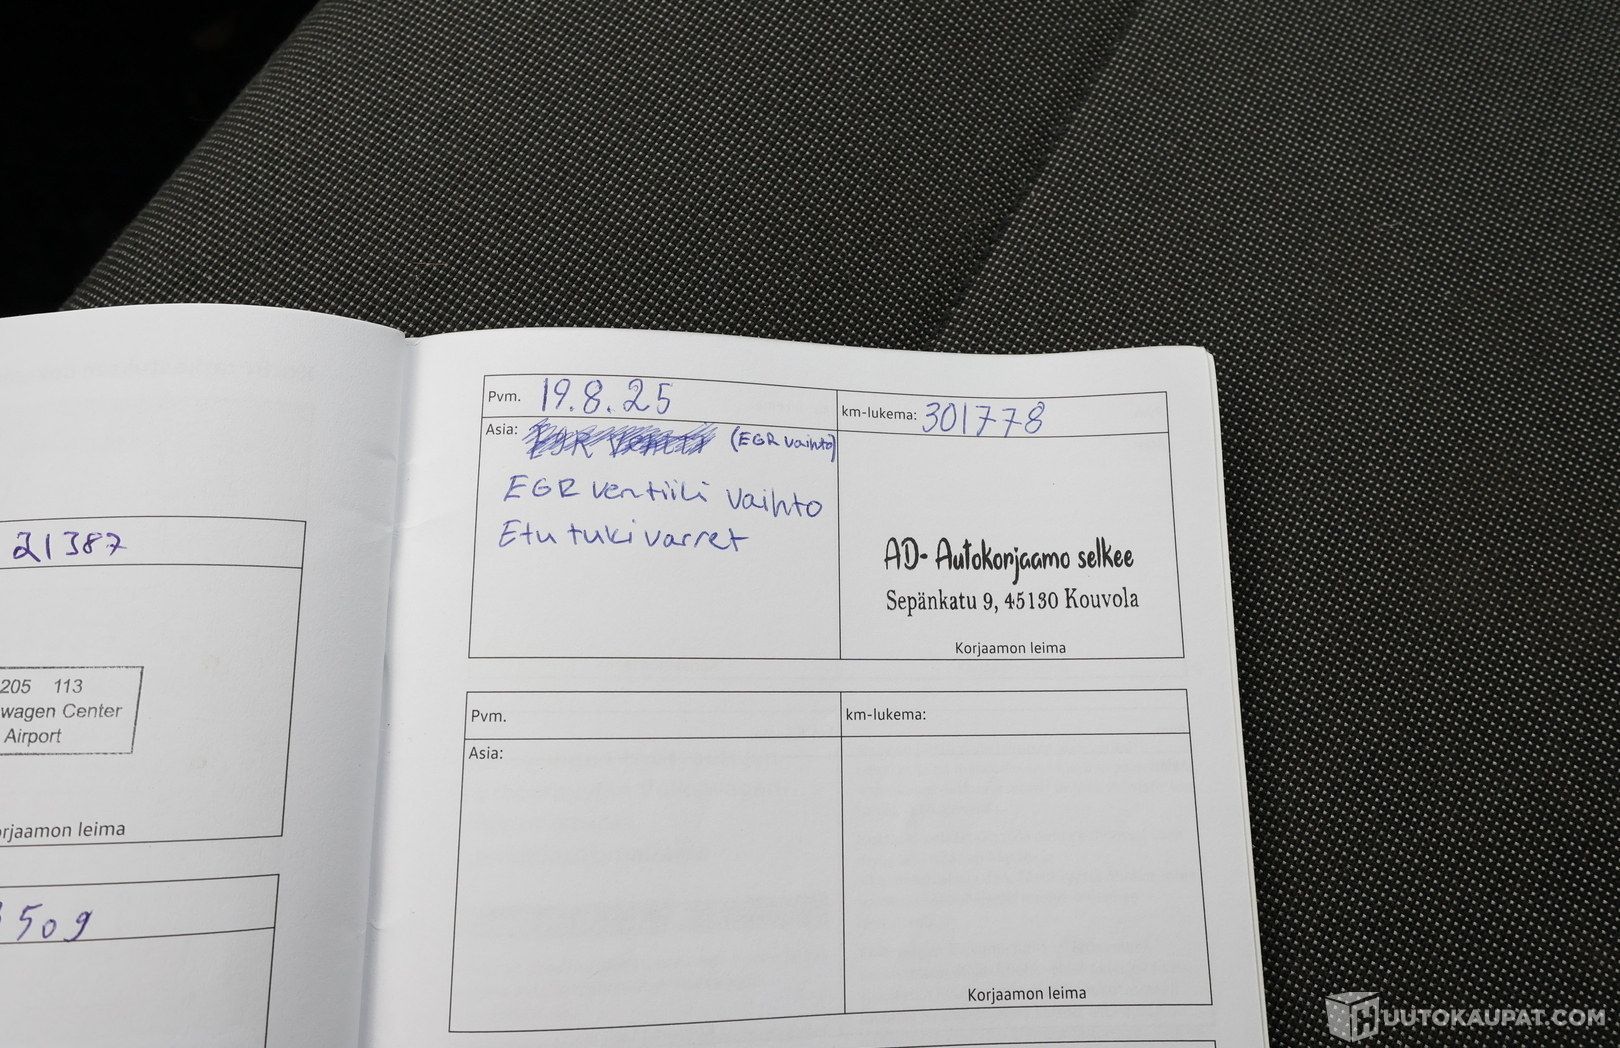 21387
205 113
wagen Center
Airport
rjaamon leima
509
Pvm. 19.8.25
km-lukema: 301778
Asia: (EGR vaihto)
EGR ventiili vaihto
Etu tukivarret
AD- Autokorjaamo selkee
Sepänkatu 9, 45130 Kouvola
Korjaamon leima
Pvm.
km-lukema:
Asia:
Korjaamon leima
HUUTOKAUPAT.COM